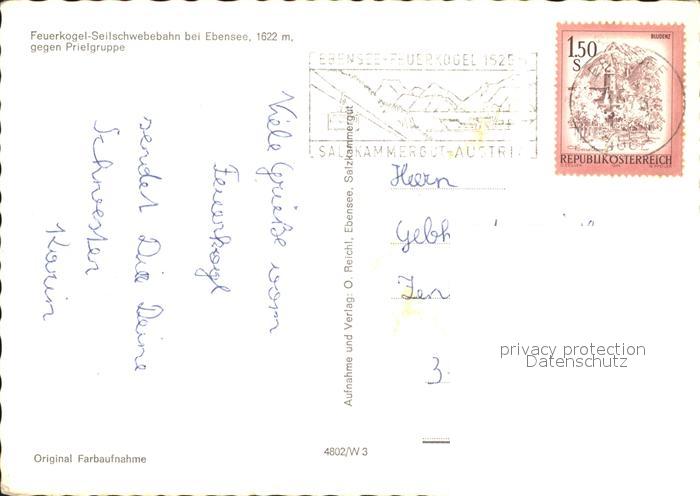 Feuerkogel-Seilschwebebahn bei Ebensee, 1622 m,
gegen Prielgruppe
Viele Grüße vom
Feuerkogl
sendet Dir Deine
Schwester
Karin
Original Farbaufnahme
Aufnahme und Verlag: O. Reichl, Ebensee, Salzkammergut
4802/W 3
EBENSEE-FEUERKOGEL 1625 m
SALZKAMMERGUT-AUSTRIA
BLUDENZ
1.50
S
REPUBLIK ÖSTERREICH
Herrn
Gebh
3
privacy protection
Datenschutz